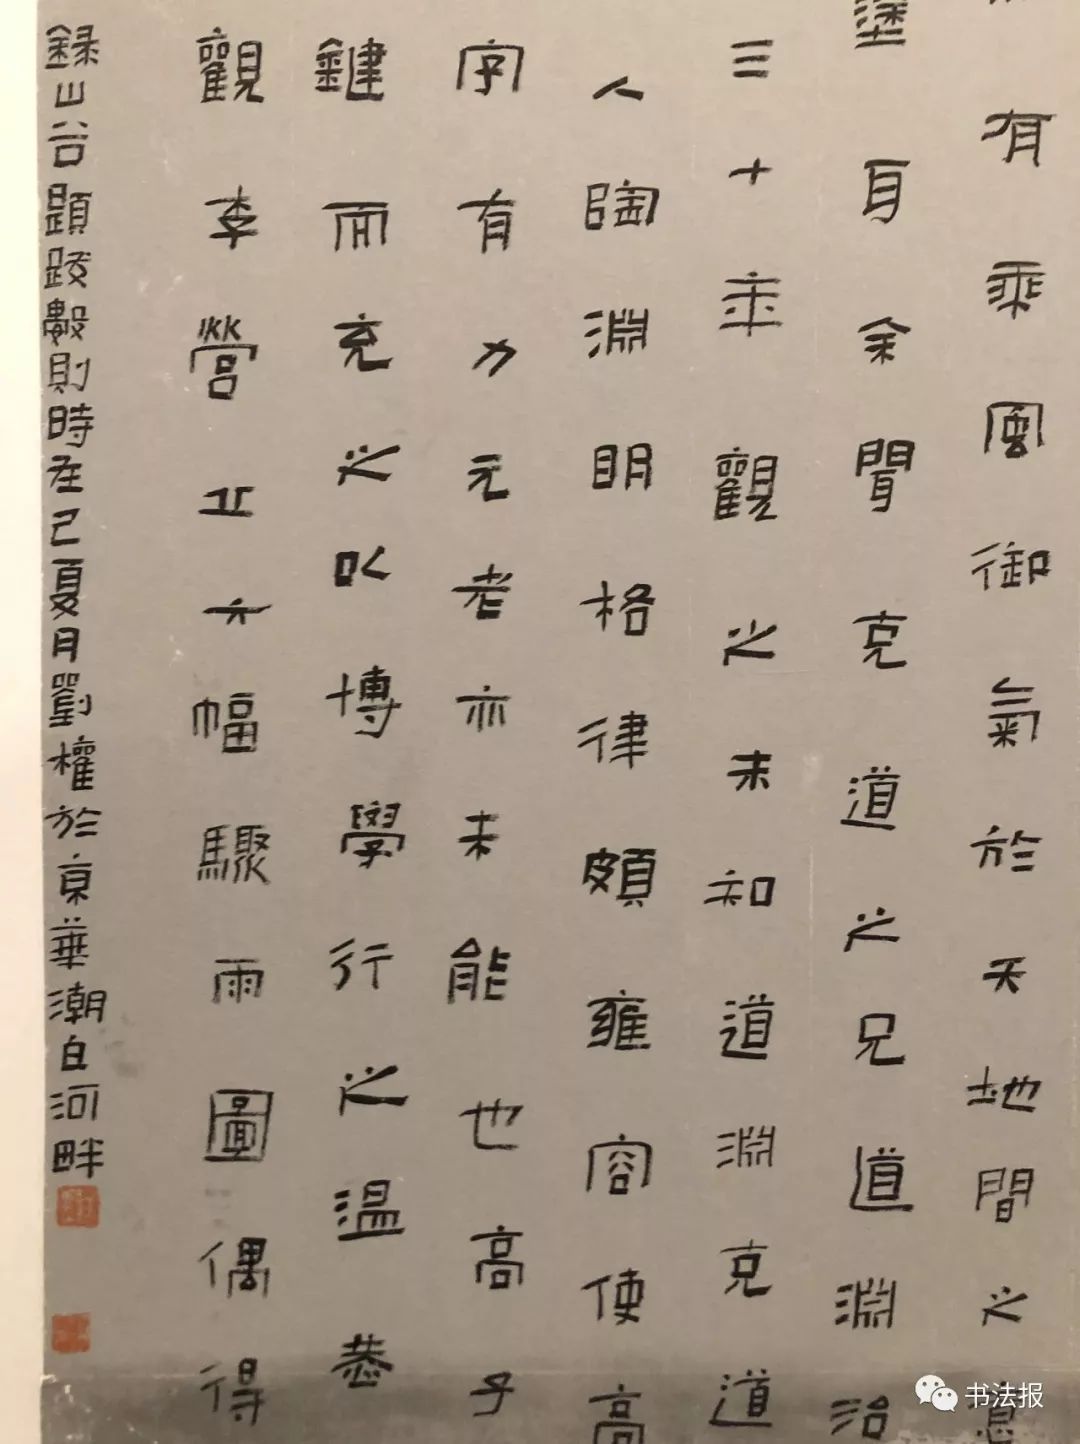 有乘風御氣於天地間之意
塗耳余聞克道之兄道淵治
三十年觀之未知道淵克道
人陶淵明格律頗雍容使高
字有力元老亦未能也高子
鍵而充之以博學行之溫恭
觀李營丘六幅驟雨圖偶得
錄山谷題跋數則時在己夏月劉權於京華潮白河畔
书法报